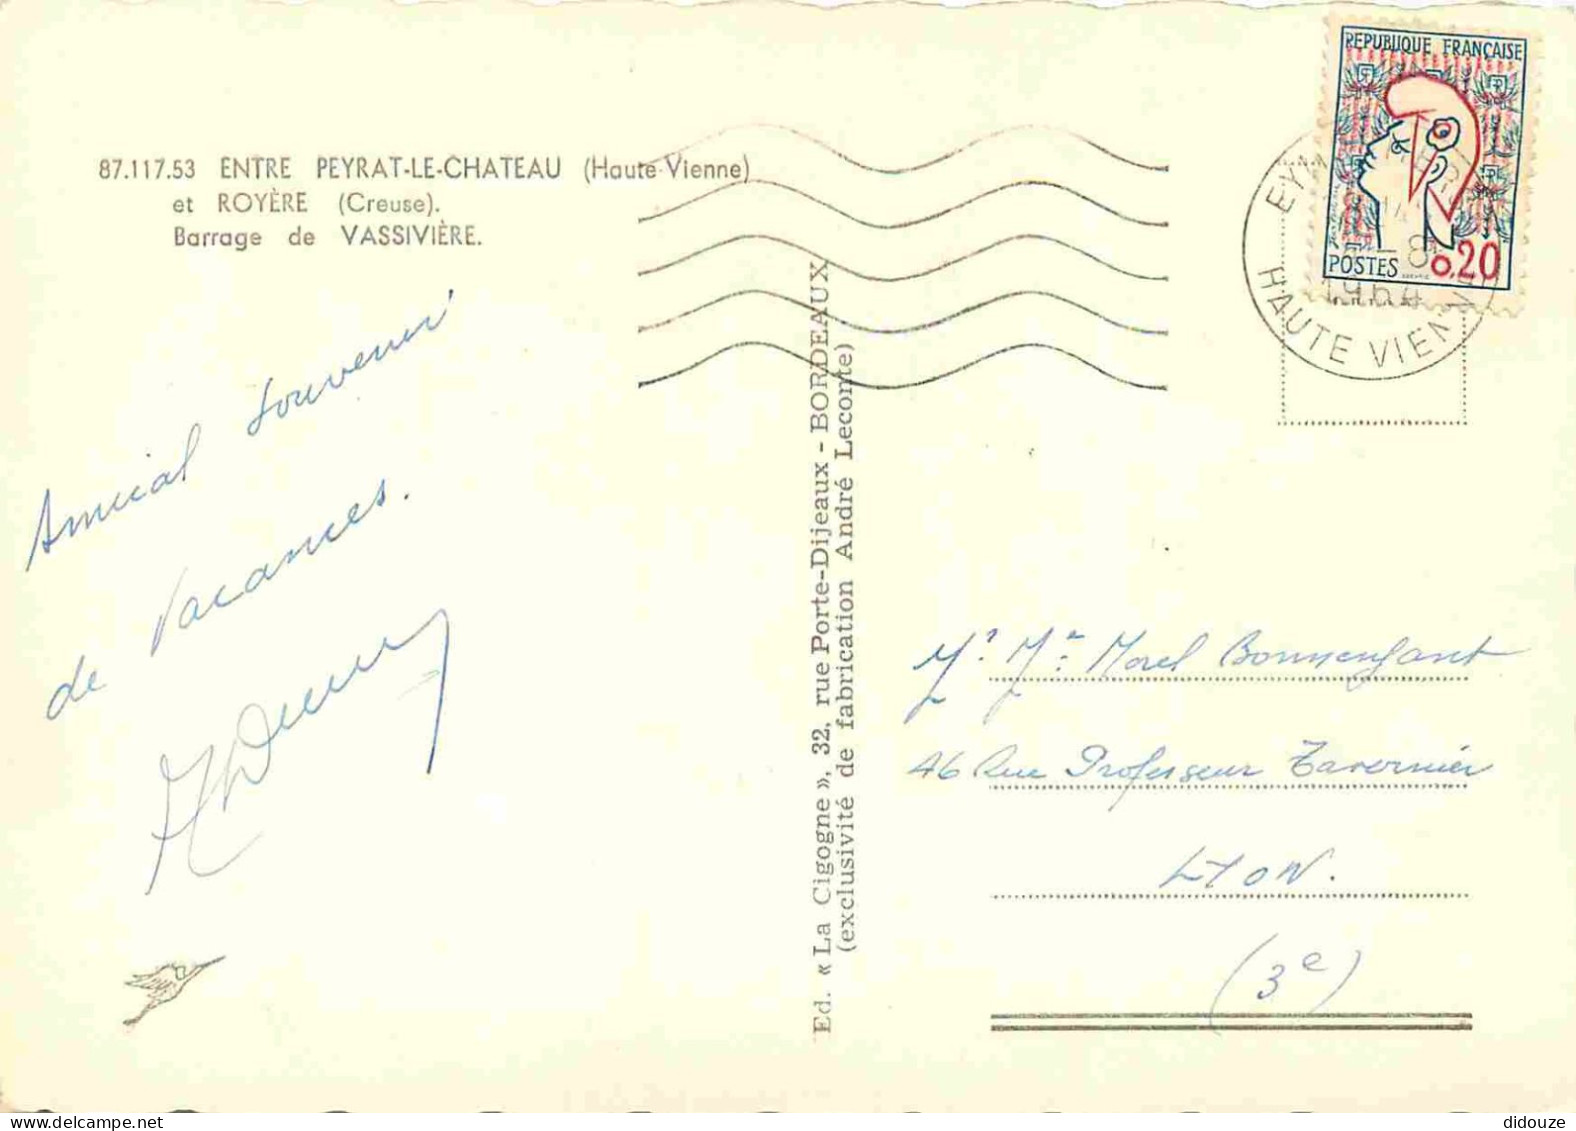 REPUBLIQUE FRANÇAISE
POSTES 0,20
HAUTE VIENNE
1964
87.117.53 ENTRE PEYRAT-LE-CHATEAU (Haute-Vienne)
et ROYÈRE (Creuse).
Barrage de VASSIVIÈRE.
Amical souvenir
de Vacances.
Ed. « La Cigogne », 32, rue Porte-Dijeaux - BORDEAUX
(exclusivité de fabrication André Leconte)
Morel Bonnenfant
46 Rue Professeur Tavernier
LYON.
(3e)
delcampe.net
didouze